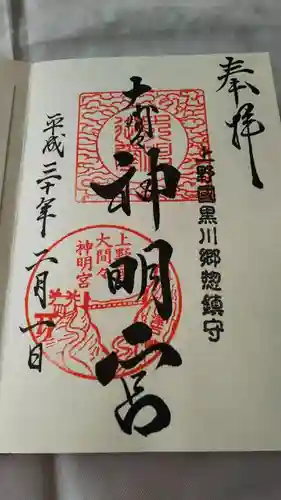 奉拝
上野國黒川郷惣鎮守
大間々
神明宮
平成三十年二月一日
上野國
大間々
神明宮